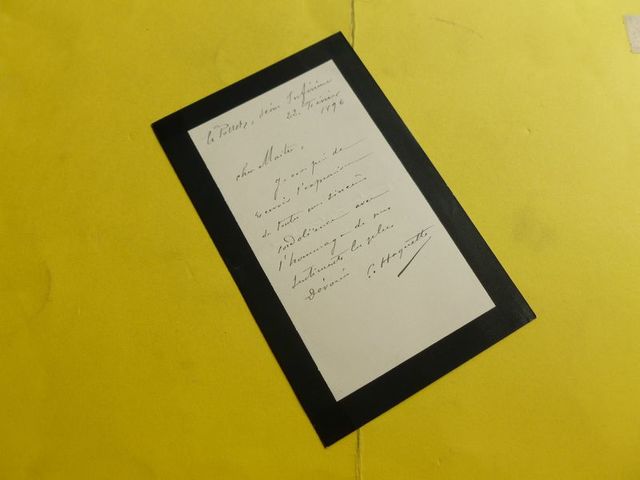 Le Pollet, Seine Inférieure
22 Février
1896
Cher Maître,
Je vous prie de
recevoir l'expression
de toutes mes sincères
condoléances avec
l'hommage de mes
sentiments les plus
Dévoués G. Haquette